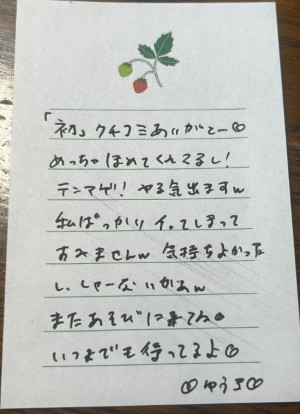 「初」クチコミありがとー♡
めっちゃほめてくれてるし!
テンアゲ! やる気出ますw
私ばっかりイってしまって
すみませんw 気持ちよかった
し、しゃーないかぁw
またあそびに来てね♡
いつまでも待ってるよ♡
♡ゆうき♡